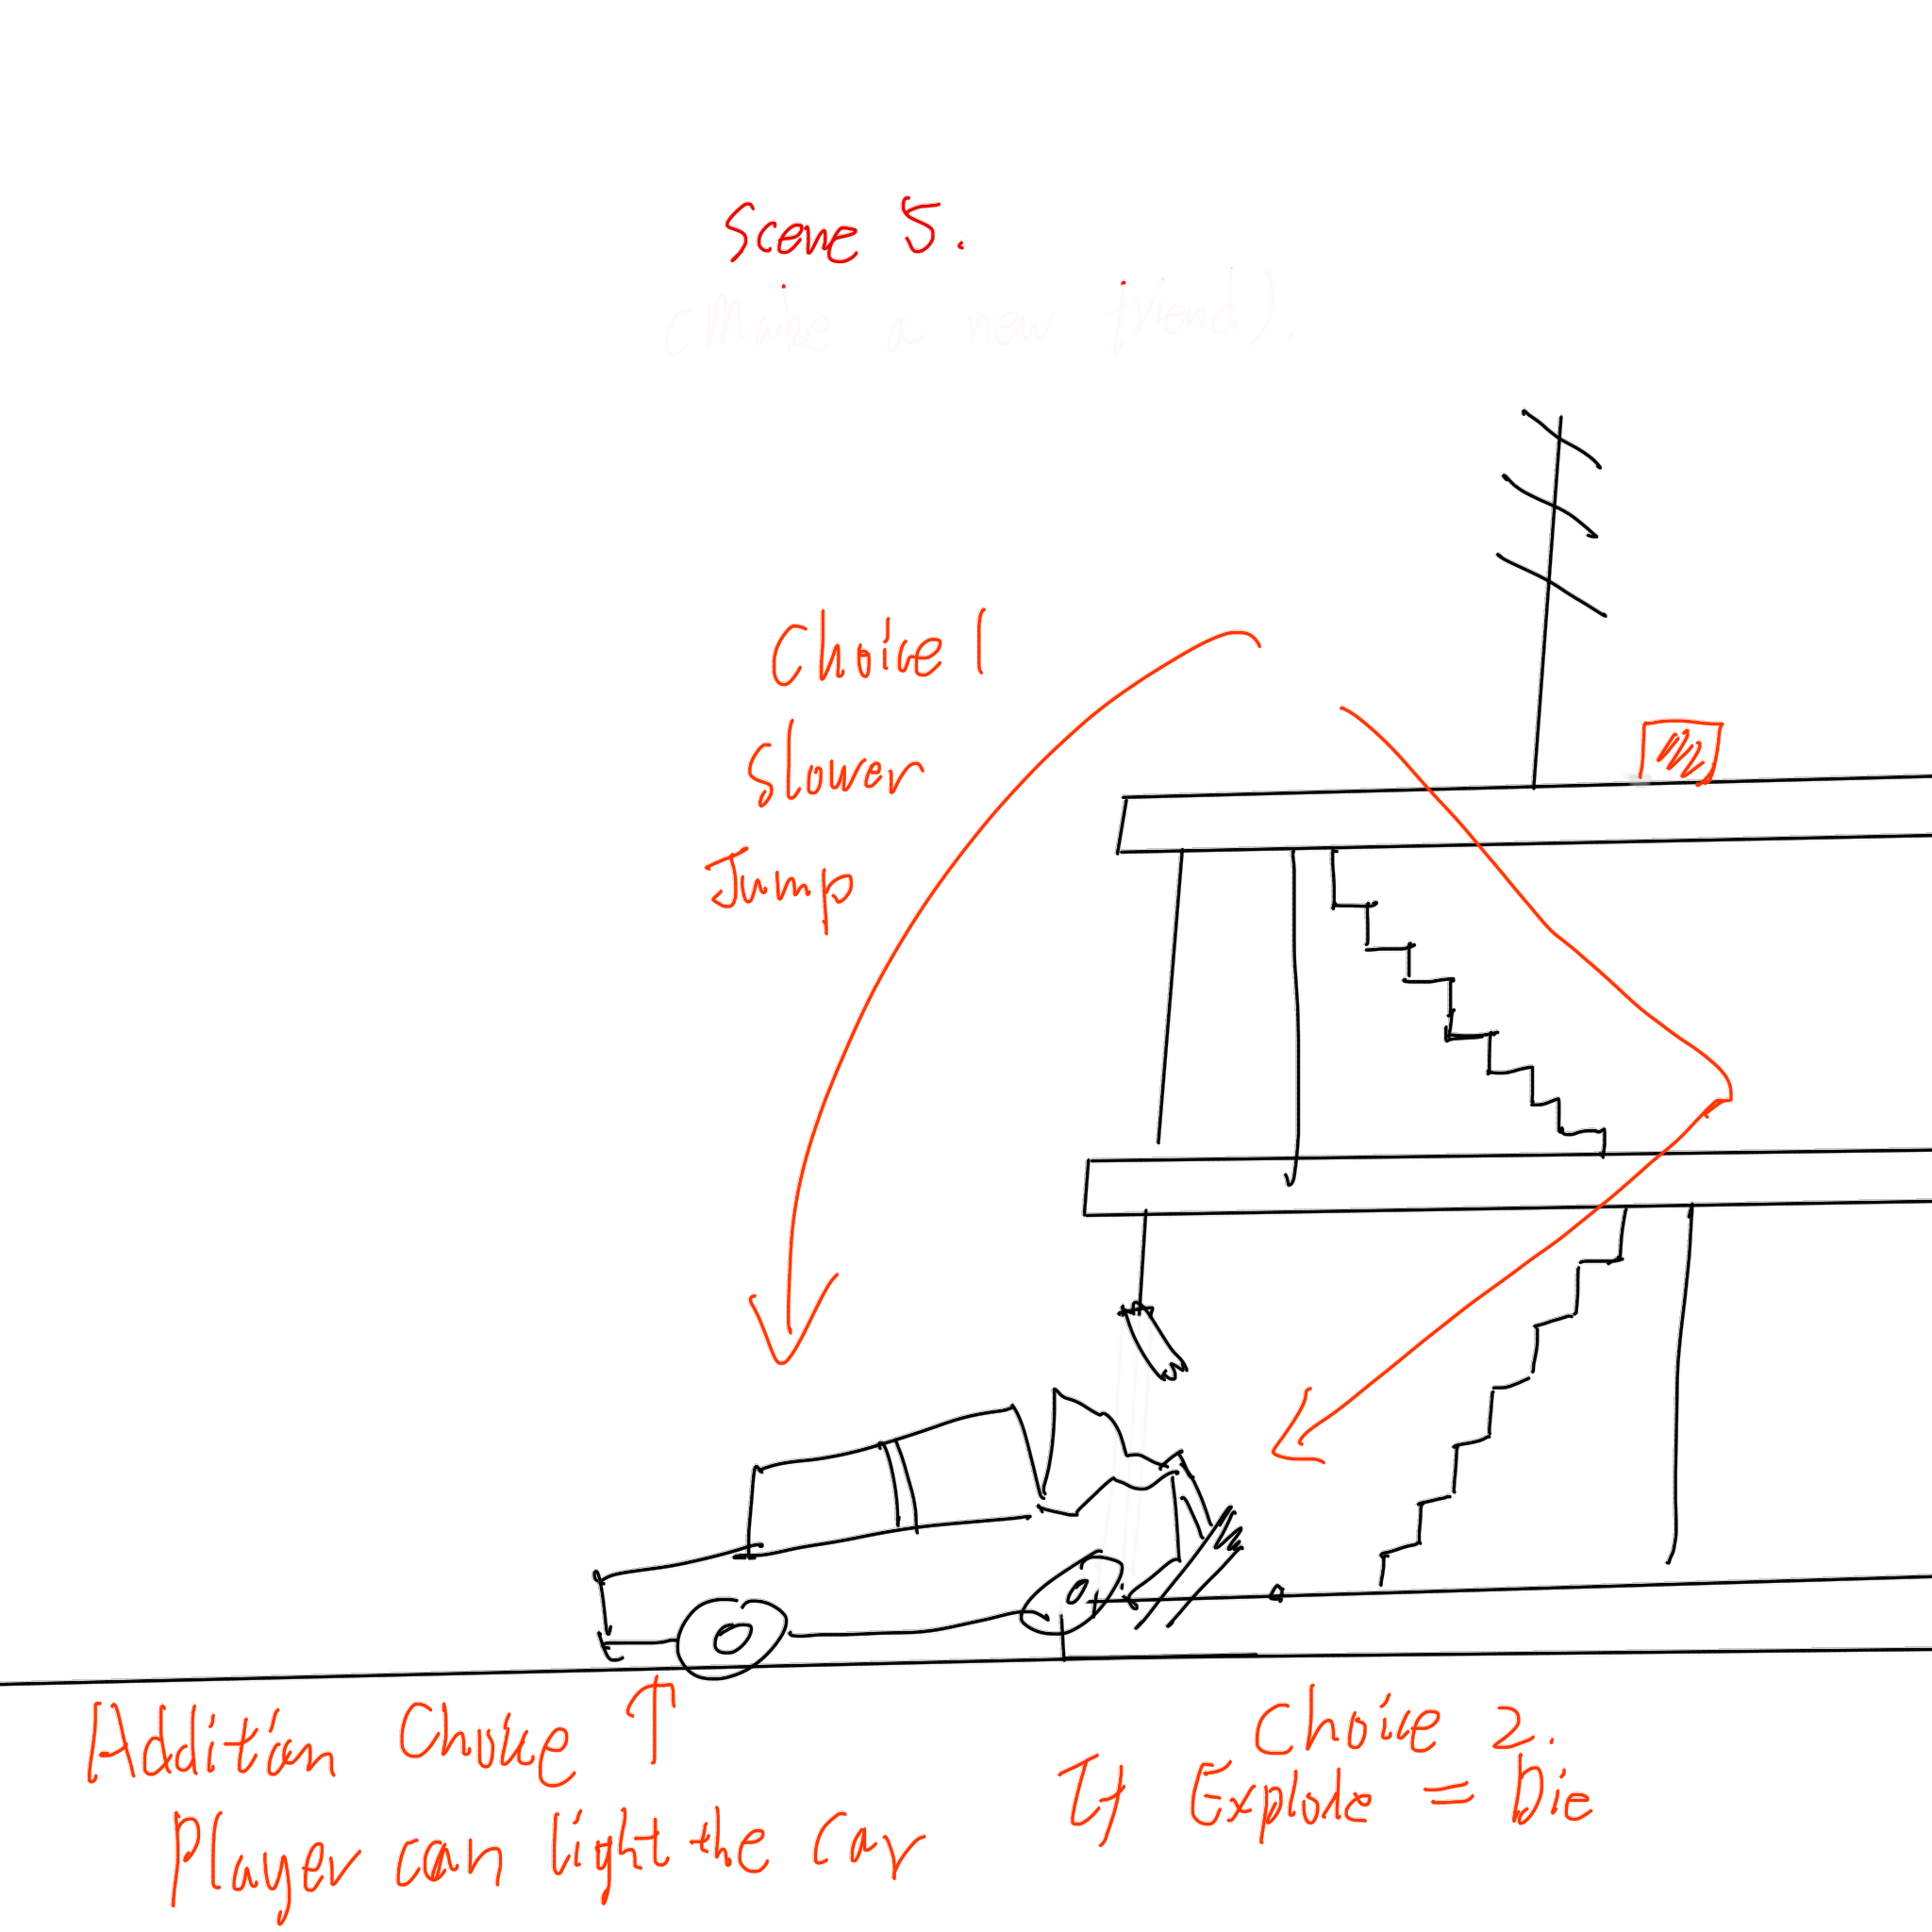 Scene 5.
(Make a new friend).
Choice 1
Slower
Jump
Addition Choice
Player can light the car
Choice 2.
If Explode = Die